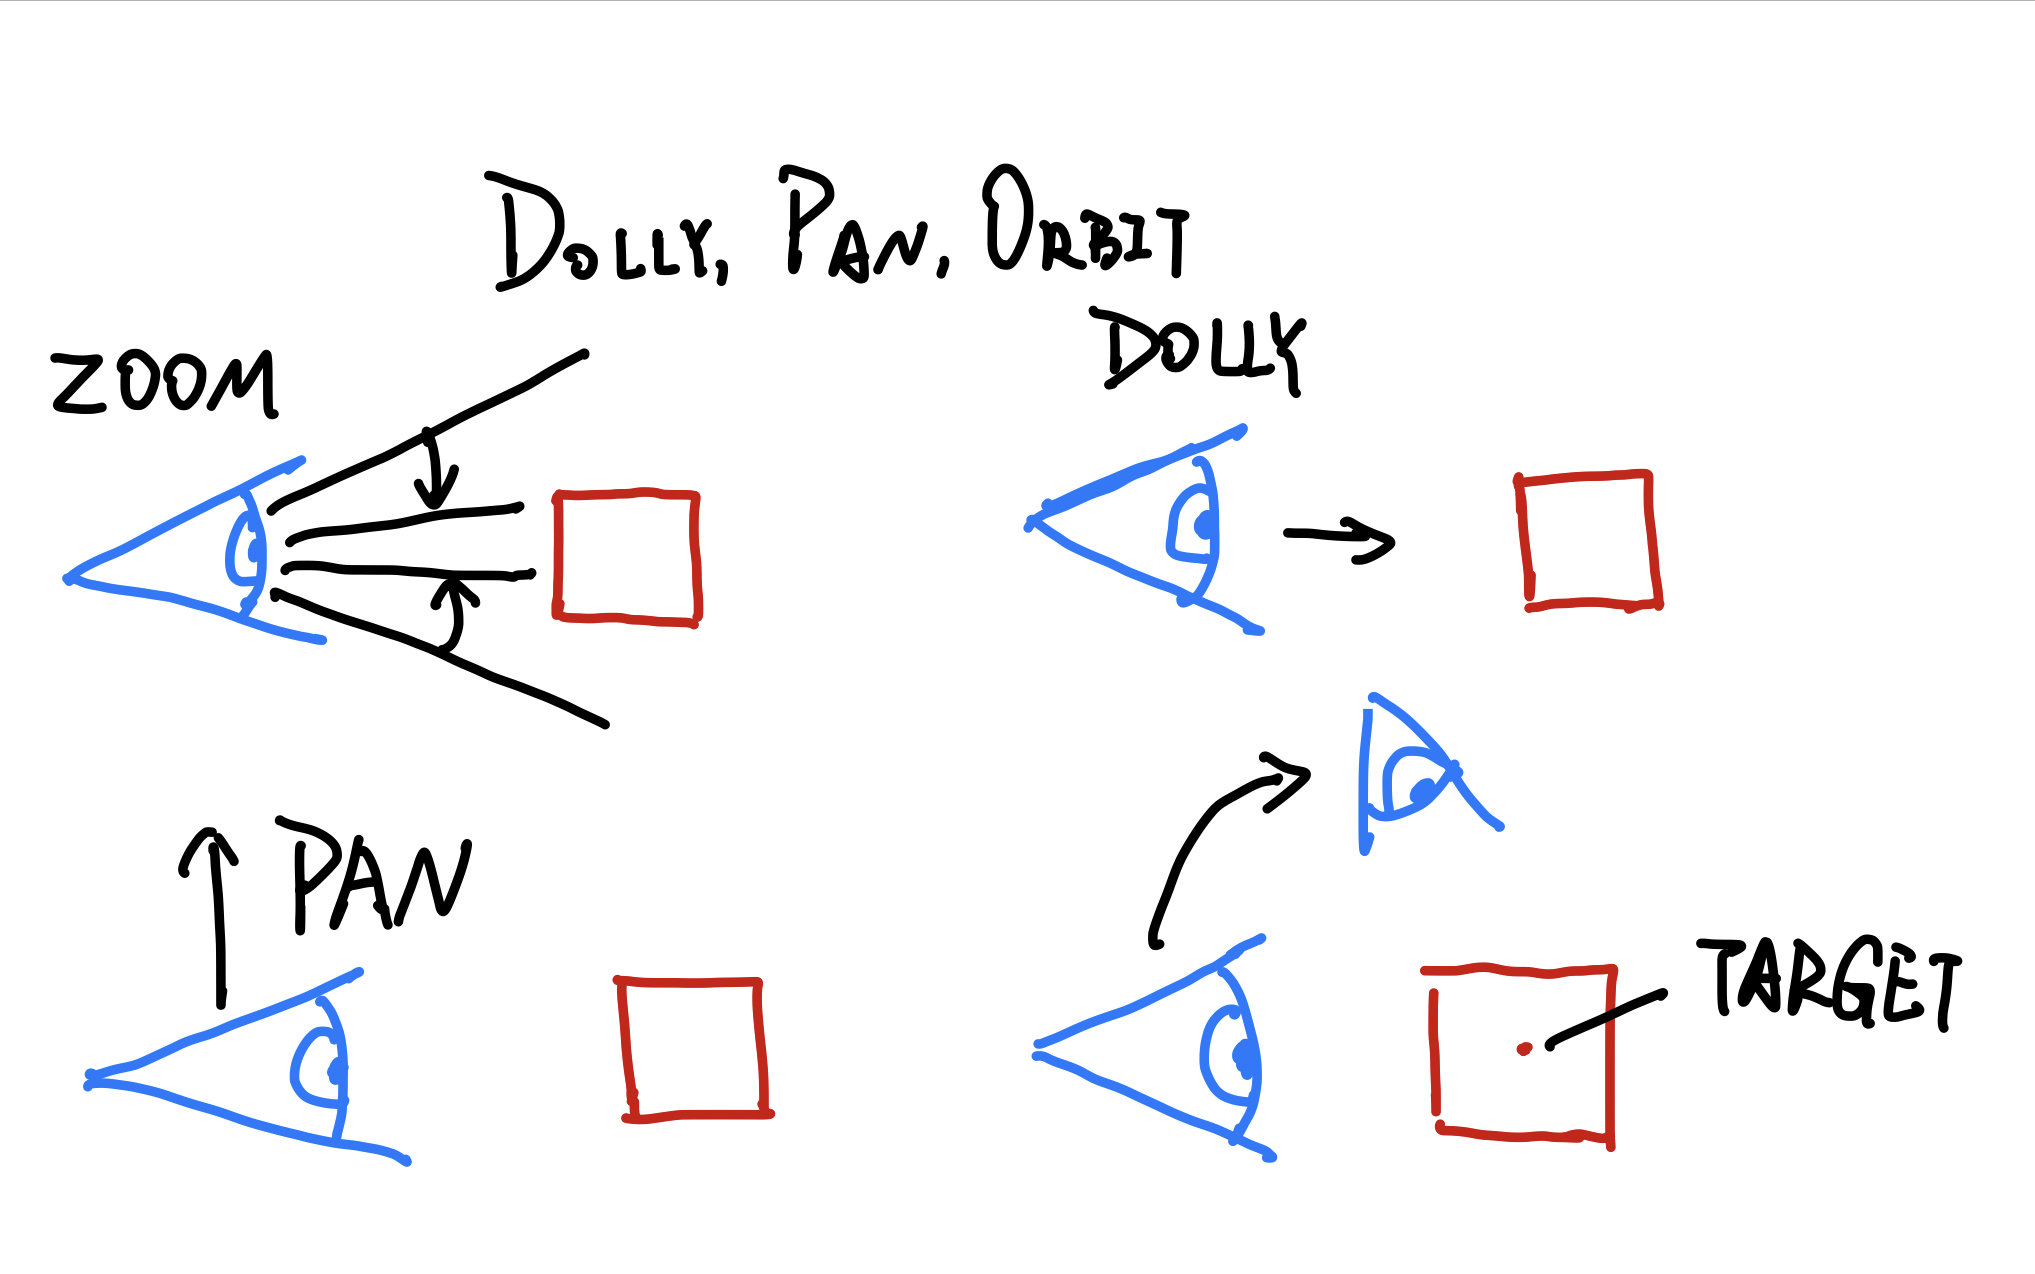 DOLLY, PAN, ORBIT
ZOOM
DOLLY
PAN
TARGET